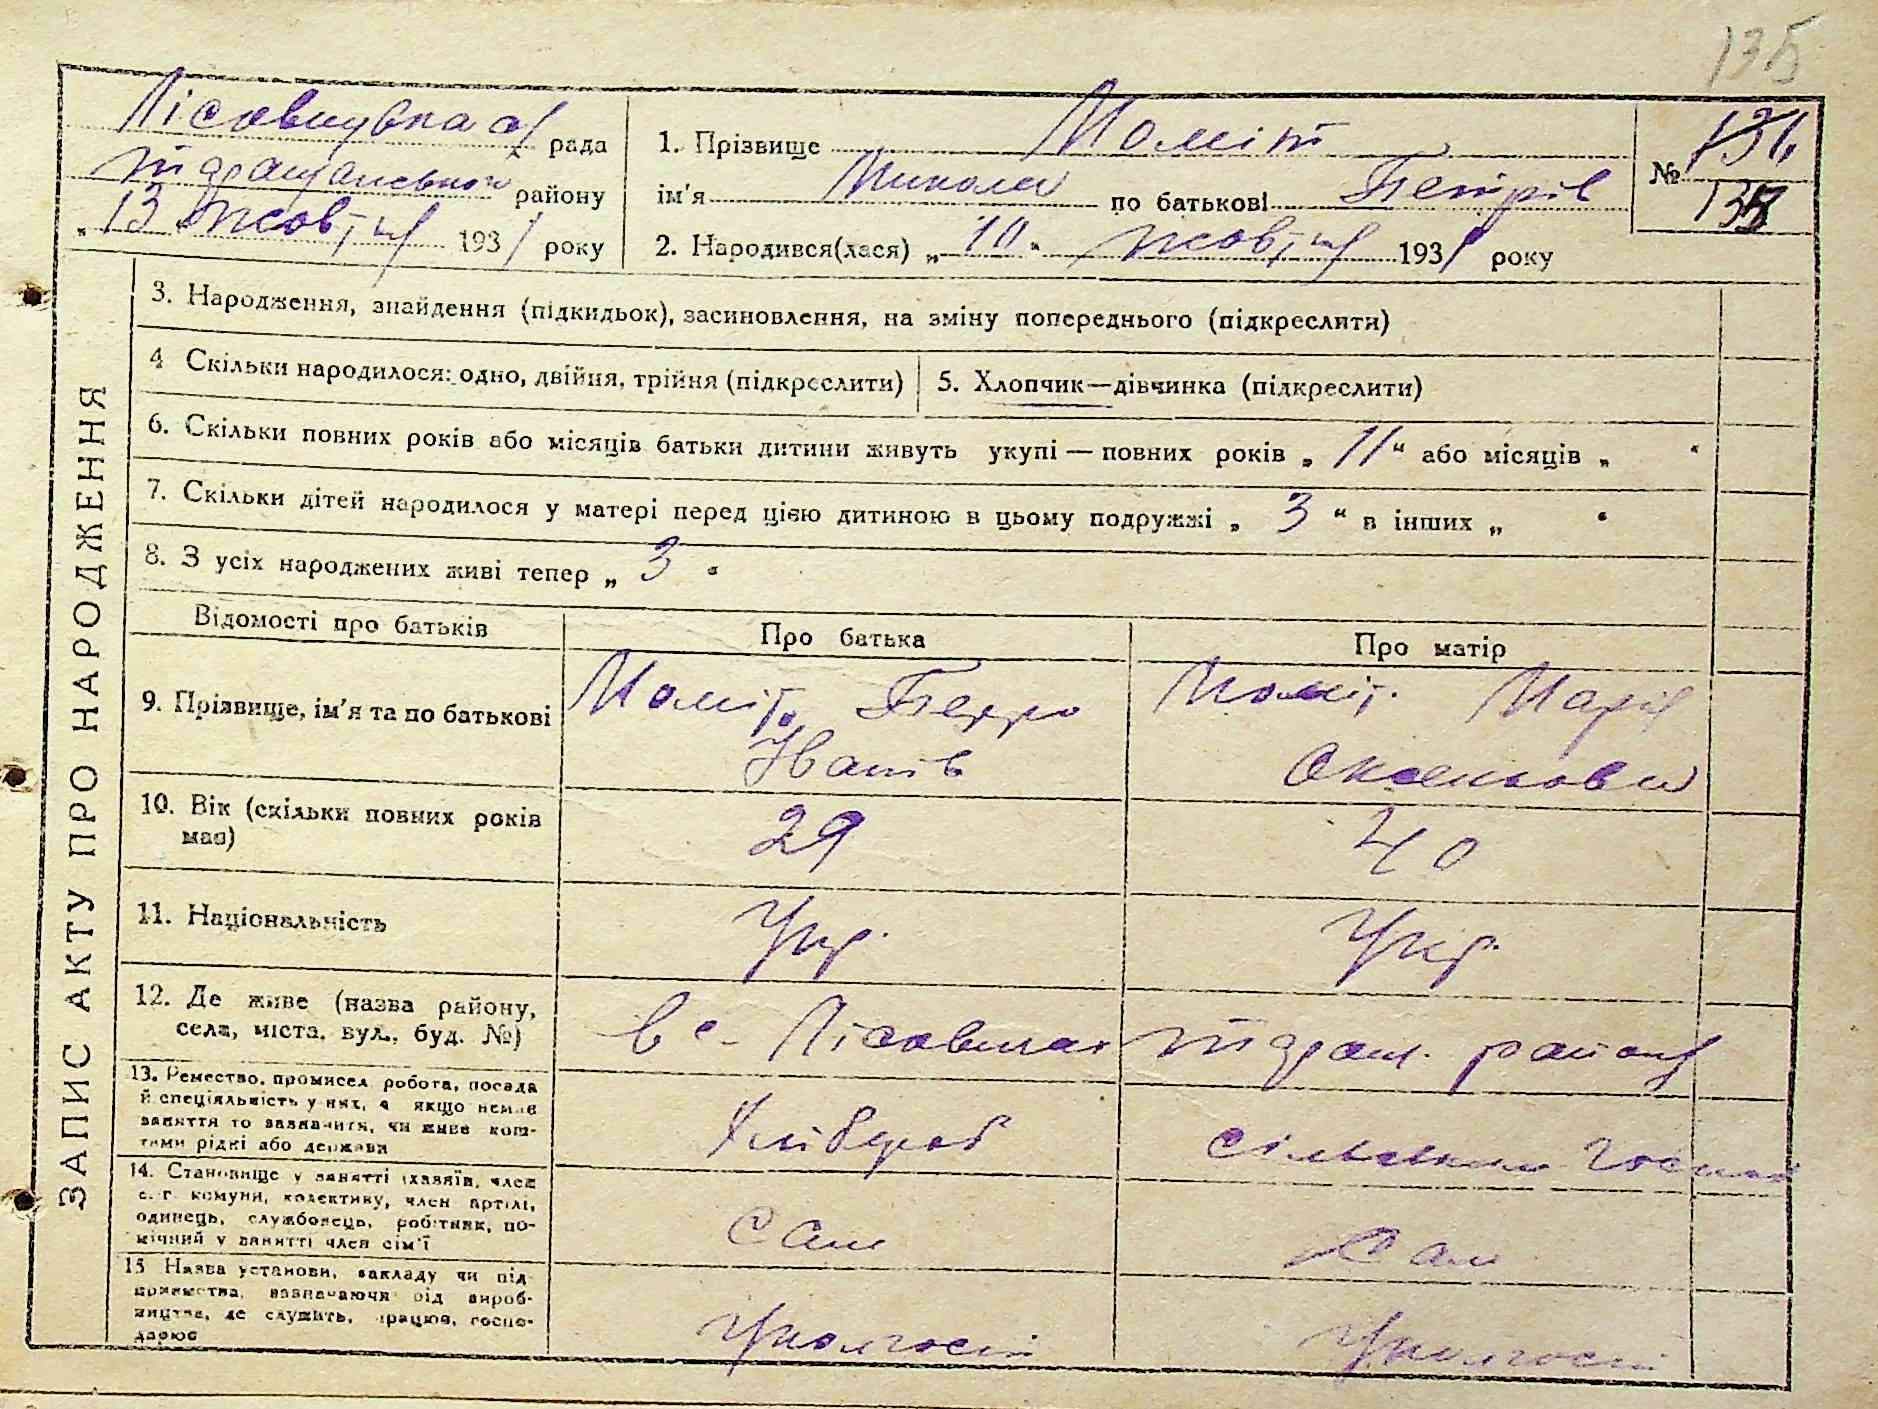 135
рада
району
" 13 " жовтня 1931 року
1. Прізвище Моміт
ім'я Микола по батькові Петрів
2. Народився(лася) „ 10 " жовтня 1931 року
№ 131
135
ЗАПИС АКТУ ПРО НАРОДЖЕННЯ
3. Народження, знайдення (підкидьок), засиновлення, на зміну попереднього (підкреслити)
4 Скільки народилося: одно, двійня, трійня (підкреслити)
5. Хлопчик—дівчинка (підкреслити)
6. Скільки повних років або місяців батьки дитини живуть укупі — повних років „ 11 " або місяців „ "
7. Скільки дітей народилося у матері перед цією дитиною в цьому подружжі „ 3 " в інших „ "
8. З усіх народжених живі тепер „ 3 "
Відомості про батьків
Про батька
Про матір
9. Прізвище, ім'я та по батькові
Моміт Петро
Іванів
Моміт Марія
10. Вік (скільки повних років
має)
29
40
11. Національність
Укр.
Укр.
12. Де живе (назва району,
села, міста, вул., буд. №)
в с. району
13. Ремество, промисел робота, посада
й спеціяльність у них, а якщо немає
заняття то зазначити, чи живе кош-
тами рідні або держави
Хлібороб
14. Становище у занятті (хазяїн, член
с. г. комуни, колективу, член артілі,
одинець, службовець, робітник, по-
мічний у занятті член сім'ї
Сам
Сам
15 Назва установи, закладу чи під
приємства, зазначаючи рід вироб-
ництва, де служить, працює, госпо-
дарює